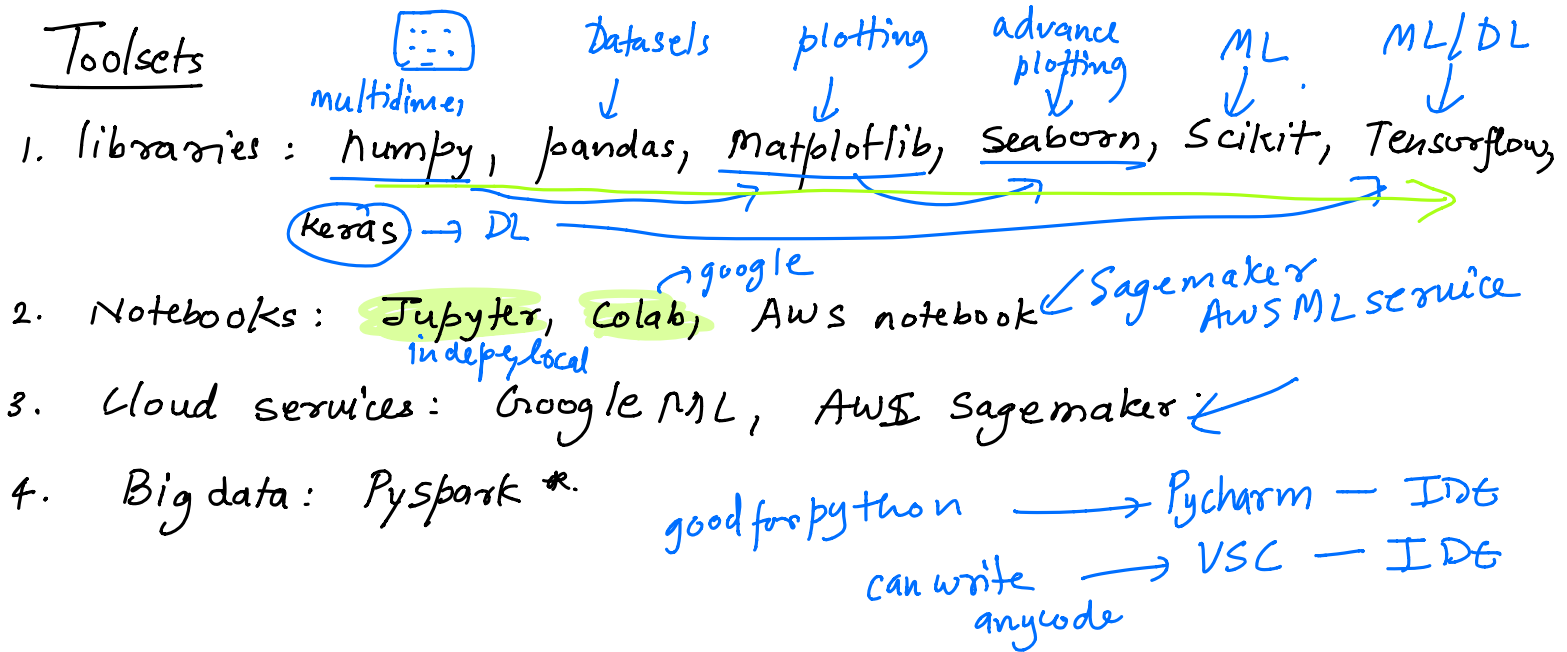 Toolsets
multidimen
Datasets
plotting
advance
plotting
ML
ML/DL
1. libraries: numpy, pandas, Matplotlib, Seaborn, Scikit, Tensorflow,
keras → DL
google
2. Notebooks: Jupyter, Colab, AWS notebook
Sagemaker
AWS ML service
local
3. Cloud services: Google ML, AWS Sagemaker.
4. Big data: Pyspark *.
good for python → Pycharm - IDE
can write
anycode → VSC - IDE